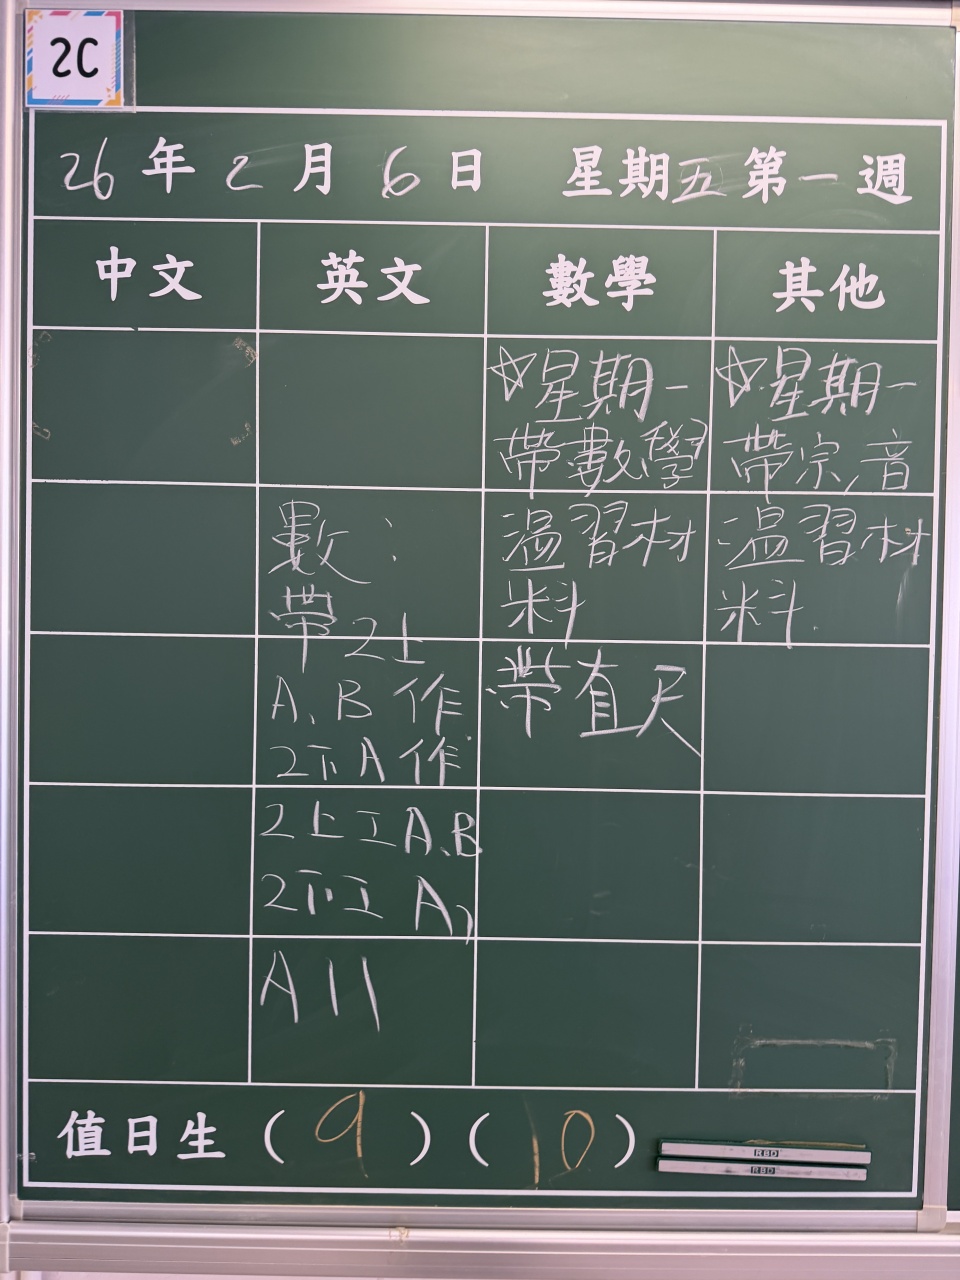 2C
26年2月6日 星期五第一週
中文 英文 數學 其他
數:
帶2上
A、B作
2下A作
2上工A、B
2下工A,
A11
☆星期一
帶數學
温習材
料
帶直尺
☆星期一
帶宗,音
温習材
料.
值日生(9)(10)
RBD
RBD